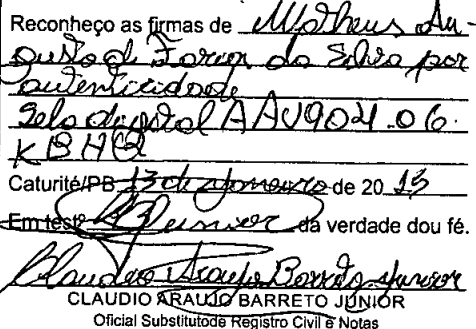 Reconheço as firmas de Matheus Au-
gusto de Farias da Silva por
autenticidade
Selo digital AAU9021-06.
KBHQ
Caturité/PB 13 de janeiro de 20 15
Em testº da verdade dou fé.
Claudio Araujo Barreto Junior
CLAUDIO ARAUJO BARRETO JUNIOR
Oficial Substituto de Registro Civil e Notas